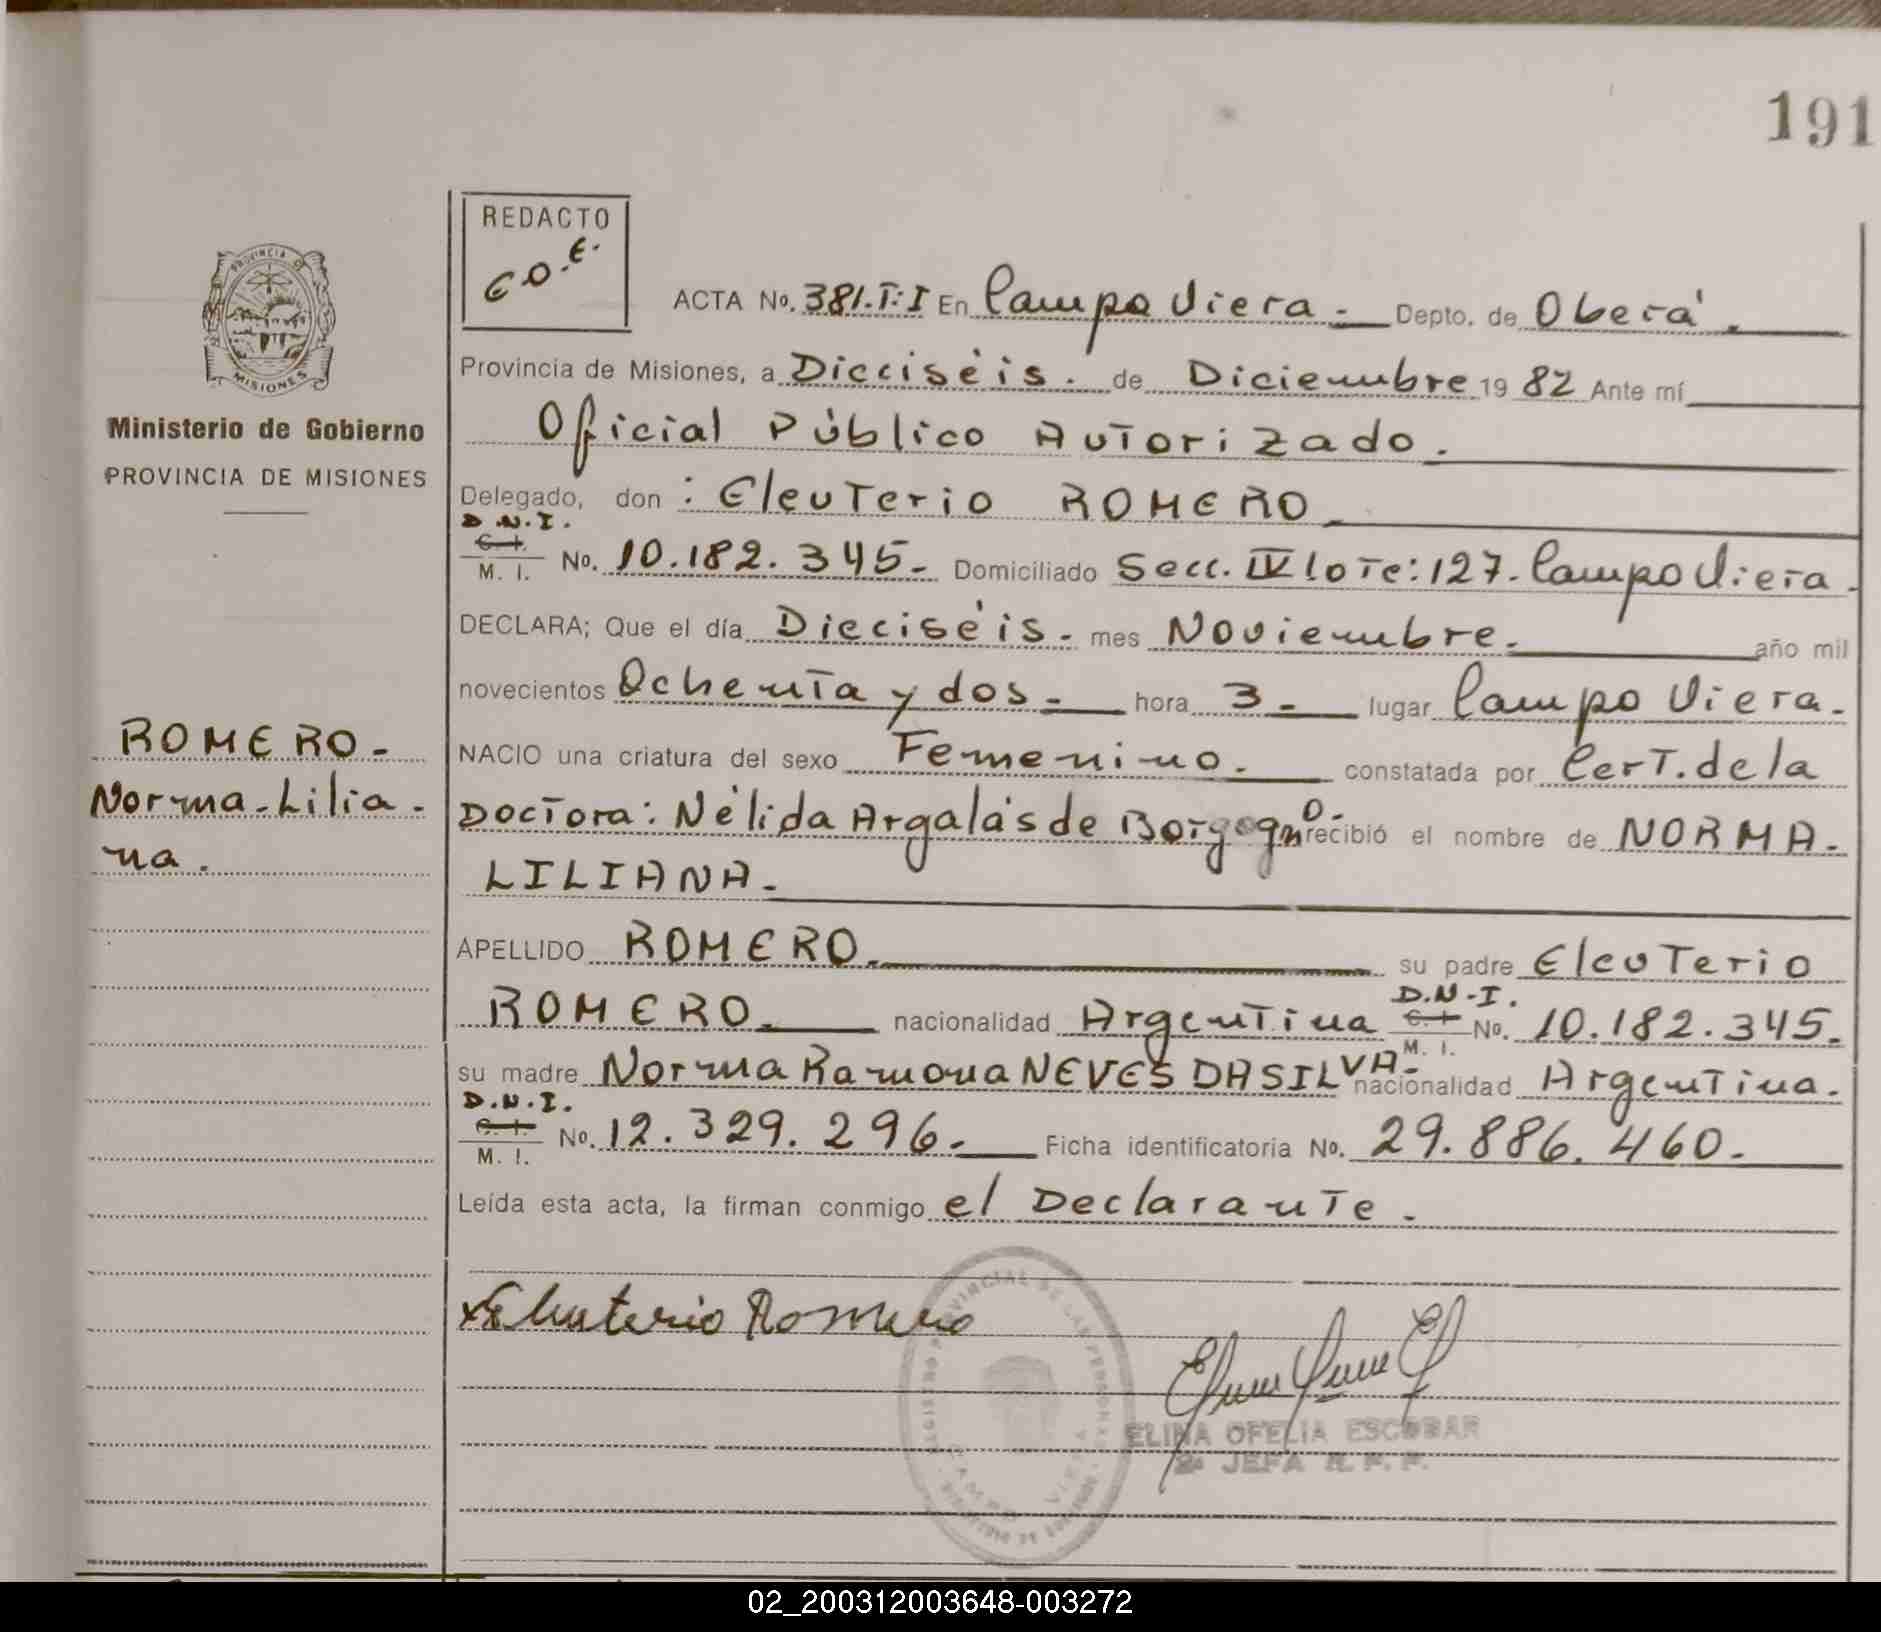 191
REDACTO
E.O.E.
PROVINCIA DE
MISIONES
Ministerio de Gobierno
PROVINCIA DE MISIONES
ACTA No. 381.T:I En Campo Viera.- Depto. de Oberá.
Provincia de Misiones, a Dieciséis. de Diciembre 1982 Ante mí
Oficial Público Autorizado.
Delegado, don : Eleuterio ROMERO
D.N.I.
C. I.
M. I. No. 10.182.345.- Domiciliado Secc. IV lote: 127. Campo Viera.
DECLARA; Que el día Dieciséis.- mes Noviembre.- año mil
novecientos Ochenta y dos.- hora 3.- lugar Campo Viera.-
NACIO una criatura del sexo Femenino.- constatada por Cert. de la
Doctora: Nélida Argalás de Borgogno.- recibió el nombre de NORMA.
LILIANA.-
ROMERO.-
Norma-Lilia-
na.
APELLIDO ROMERO.- su padre Eleuterio
ROMERO.- nacionalidad Argentina D.N.I. C. I. M. I. No. 10.182.345.-
su madre Norma Ramona NEVES DA SILVA.- nacionalidad Argentina.
D.N.I.
C. I.
M. I. No. 12.329.296.- Ficha identificatoria No. 29.886.460.-
Leída esta acta, la firman conmigo el Declarante.
Eleuterio Romero
REGISTRO PROVINCIAL DE LAS PERSONAS
CAMPO VIERA
ELINA OFELIA ESCOBAR
2a JEFA R. P. P.
02_200312003648-003272